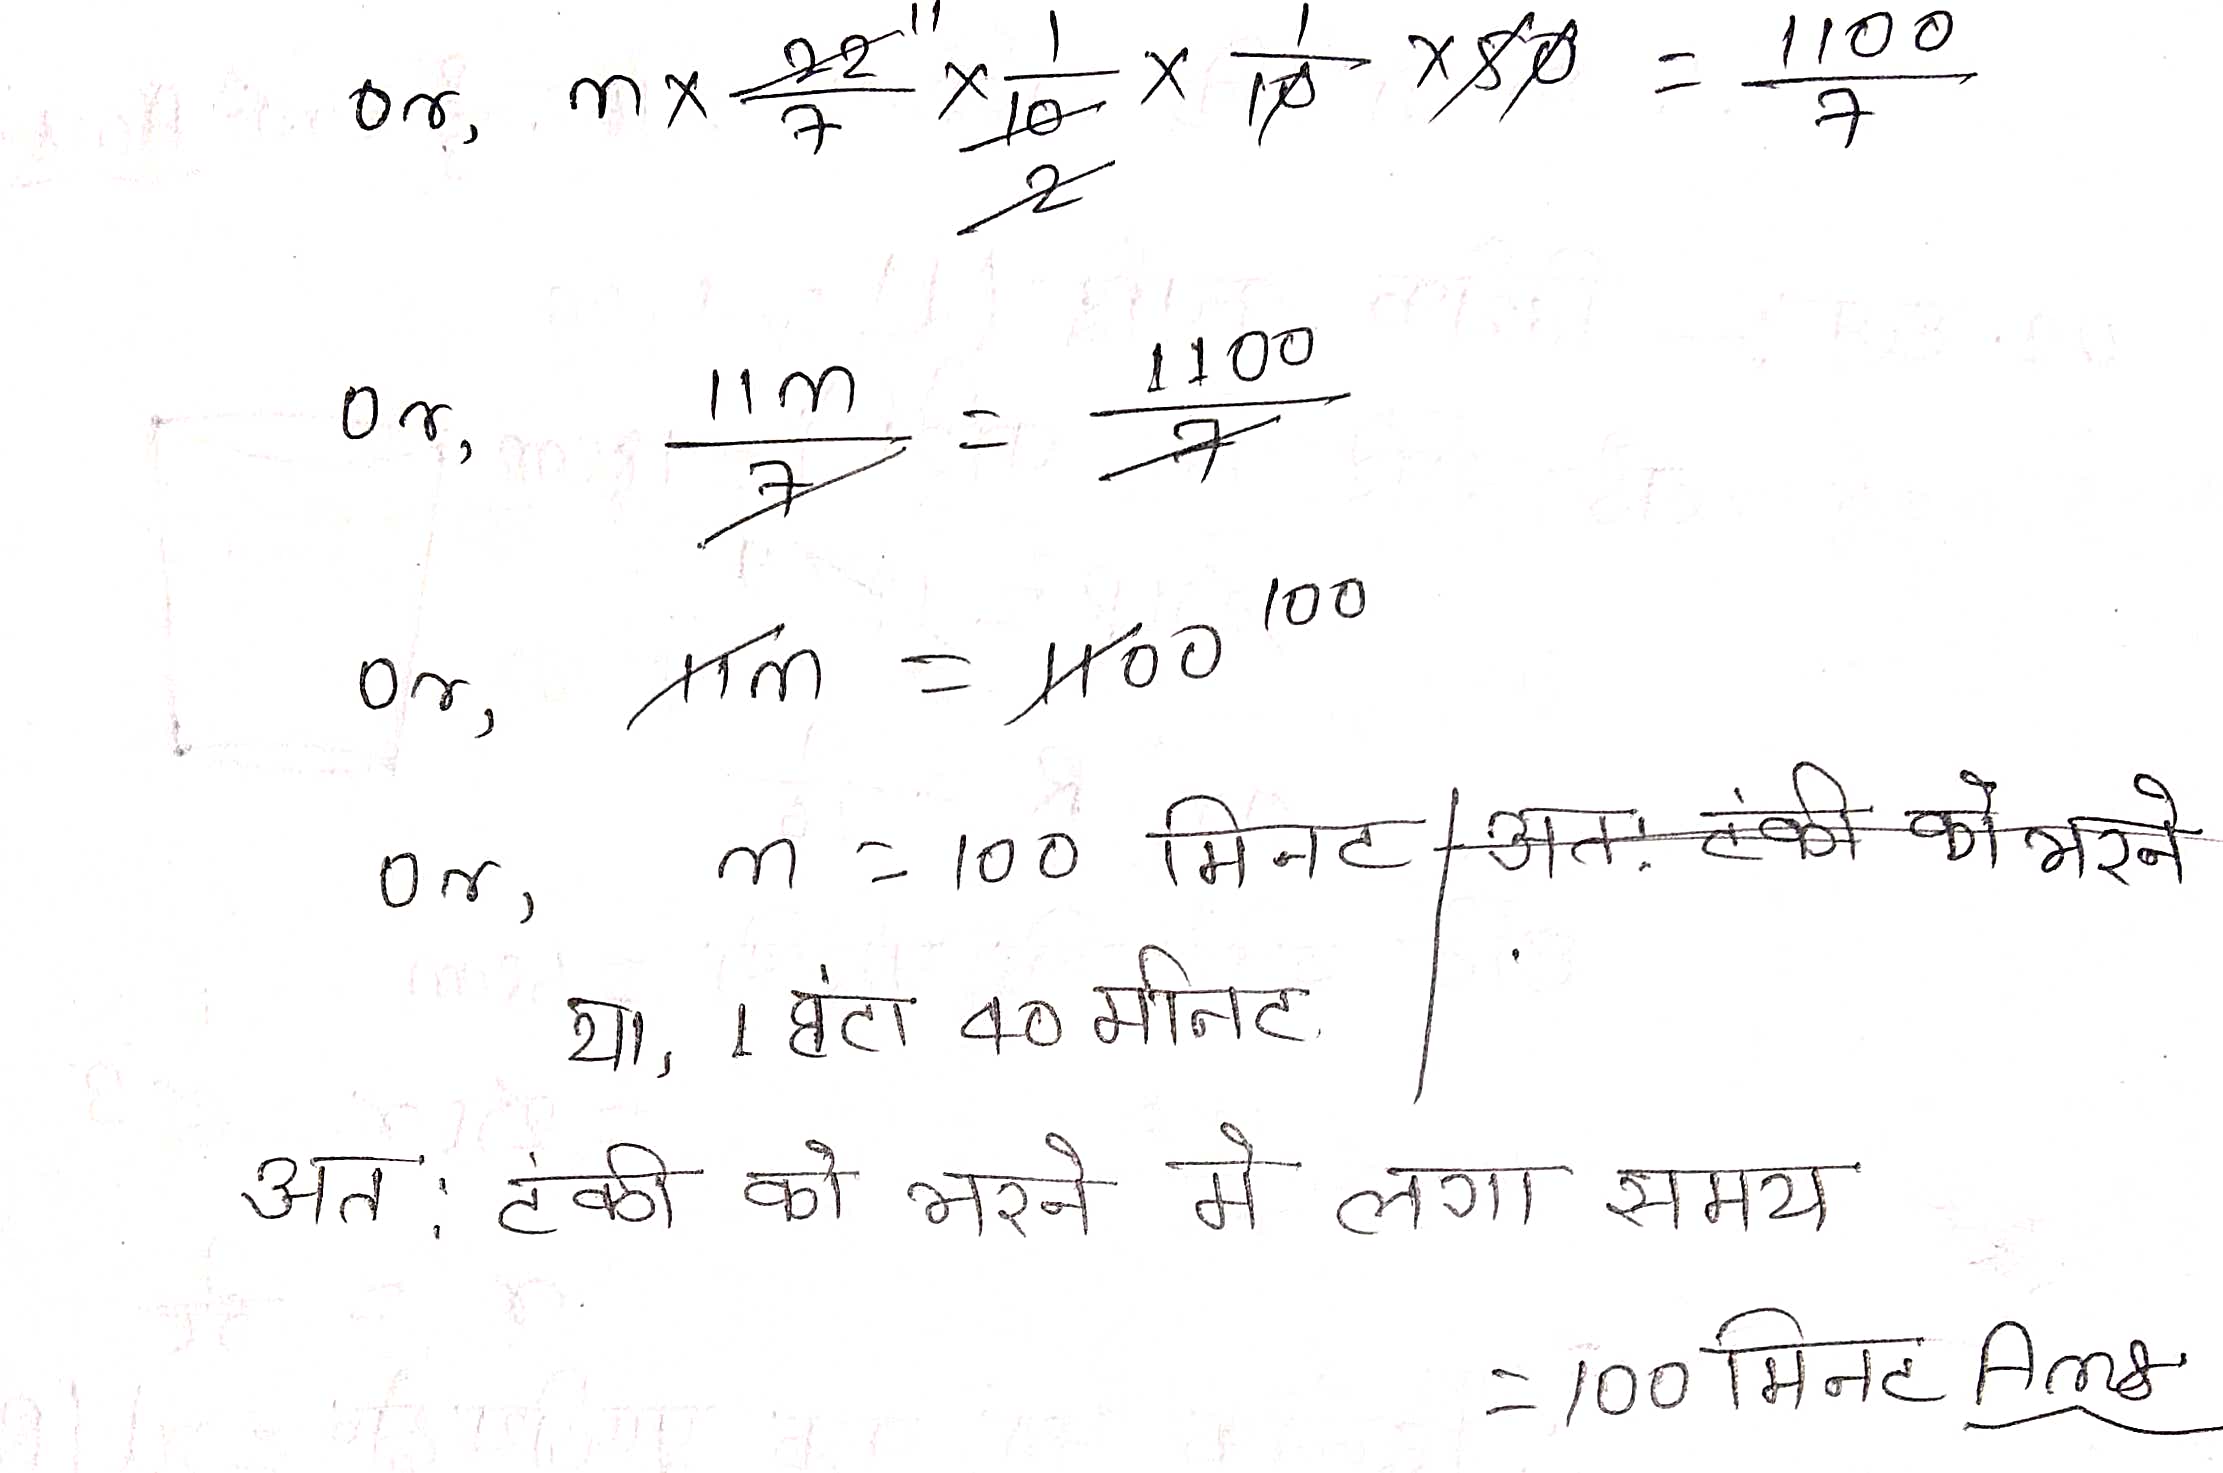 or, n × 22/7 11 × 1/10 2 × 1/10 × 50 = 1100/7
or, 11n/7 = 1100/7
or, 11n = 1100 100
or, n = 100 मिनट अत: टंकी को भरने
या, 1 घंटा 40 मीनिट
अत: टंकी को भरने मे लगा समय
= 100 मिनट Ans